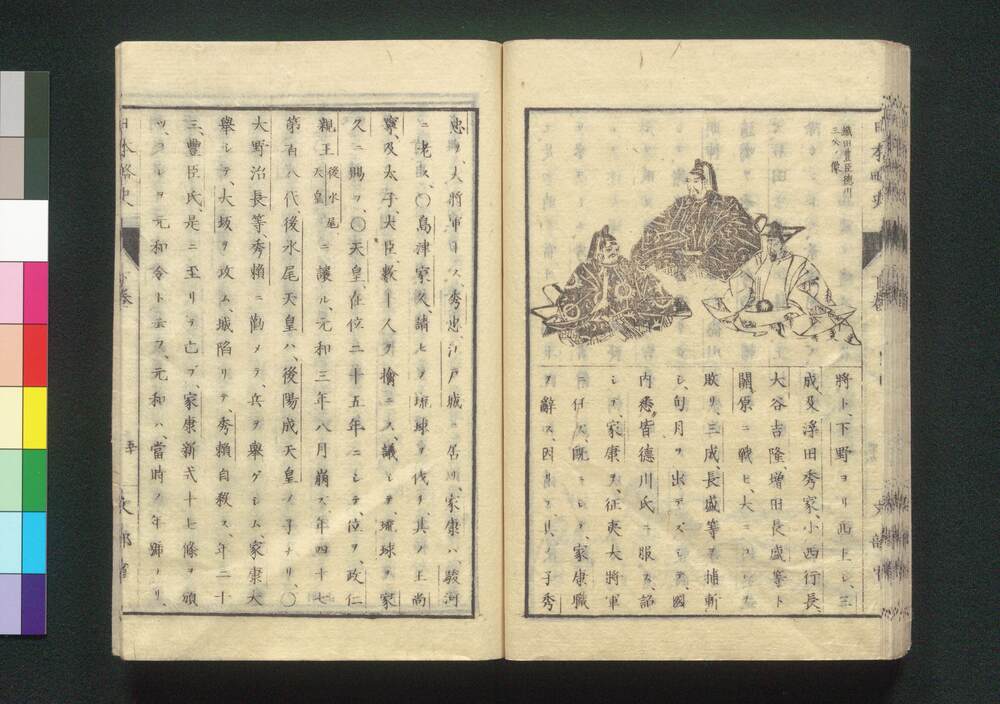 織田豊臣徳川
三氏ノ像
將ト、下野ヨリ西上シ、三
成及浮田秀家、小西行長、
大谷吉隆、増田長盛等ト
關原ニ戰ヒ、大ニコレヲ
敗リ、三成、長盛等ヲ捕斬
シ、旬月ヲ出デズシテ、國
内悉皆德川氏ニ服ス、詔
シテ、家康ヲ、征夷大將軍
ニ任ズ、既ニシテ、家康職
ヲ辭ス、因テ其ノ子秀
忠ヲ、大將軍ロス、秀忠、江戸城ニ居リ、家康ハ、駿河
ニ老ス、〇島津家久、請ヒテ琉球ヲ伐チ、其ノ王尚
寧、及太子、大臣、數十人ヲ擒ニス、議シテ、琉球ヲ家
久ニ賜フ、〇天皇、在位二十五年ニシテ、位ヲ、政仁
親王後水尾天皇ニ讓ル、元和三年八月崩ズ、年四十七
第百八代、後水尾天皇ハ、後陽成天皇ノ子ナリ、〇
大野治長等、秀頼ニ勸メテ、兵ヲ舉グシム、家康大
舉シテ、大坂ヲ攻ム、城陷リテ、秀頼自殺ス、年二十
三、豊臣氏、是ニ至リテ亡ブ、家康新式十七條ヲ頒
ツ、コレヲ元和令ト云フ、元和ハ、當時ノ年號ナリ、
日本略史
下卷
五
文部省